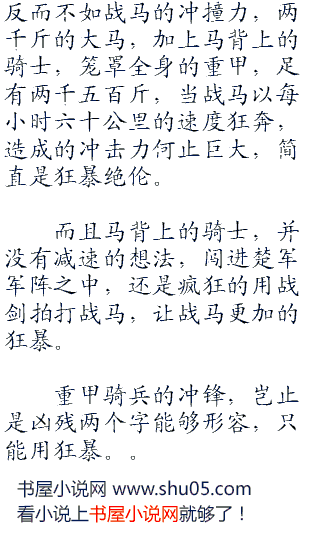 反而不如战马的冲撞力，两
千斤的大马，加上马背上的
骑士，笼罩全身的重甲，足
有两千五百斤，当战马以每
小时六十公里的速度狂奔，
造成的冲击力何止巨大，简
直是狂暴绝伦。
而且马背上的骑士，并
没有减速的想法，闯进楚军
军阵之中，还是疯狂的用战
剑拍打战马，让战马更加的
狂暴。
重甲骑兵的冲锋，岂止
是凶残两个字能够形容，只
能用狂暴。。
书屋小说网 www.shu05.com
看小说上书屋小说网就够了！